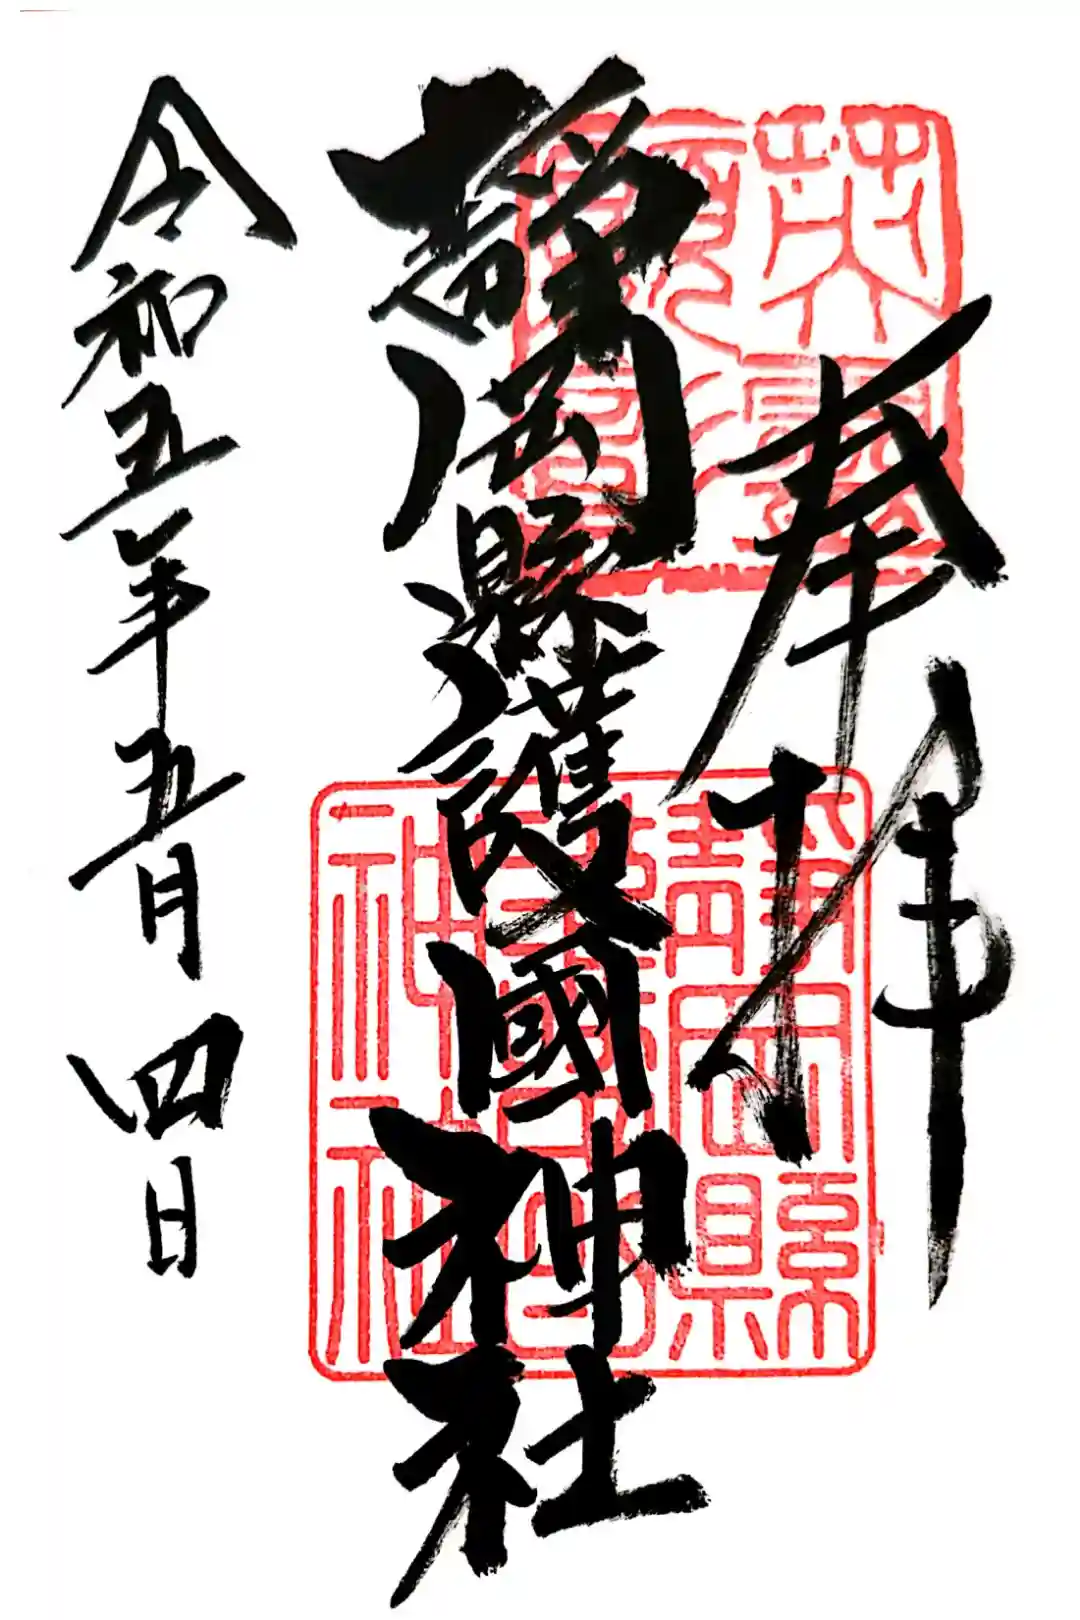 奉拝
靜岡縣護國神社
令和五年五月四日
靜岡縣護國神社